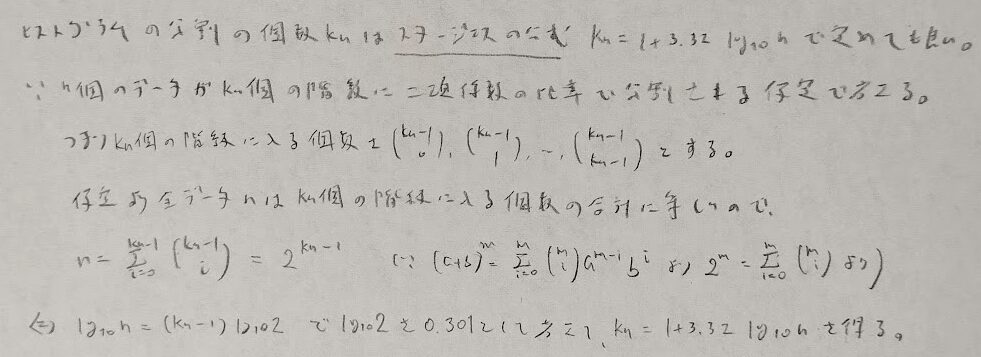 ヒストグラムの分割の個数 kn は スタージェスの公式 kn = 1+3.32 log10 n で定めても良い。
∵ n個のデータが kn個の階級に二項係数の比率で分割される仮定で考える。
つまり kn個の階級に入る個数を (kn-1 0), (kn-1 1), …, (kn-1 kn-1) とする。
仮定より全データ n は kn個の階級に入る個数の合計に等しいので、
n = Σ_{i=0}^{kn-1} (kn-1 i) = 2^{kn-1} (∵ (a+b)^m = Σ_{i=0}^{m} (m i) a^{m-i} b^i より 2^m = Σ_{i=0}^{m} (m i) より)
⇔ log10 n = (kn-1) log10 2 で log10 2 を 0.301 として考えて、kn = 1+3.32 log10 n を得る。